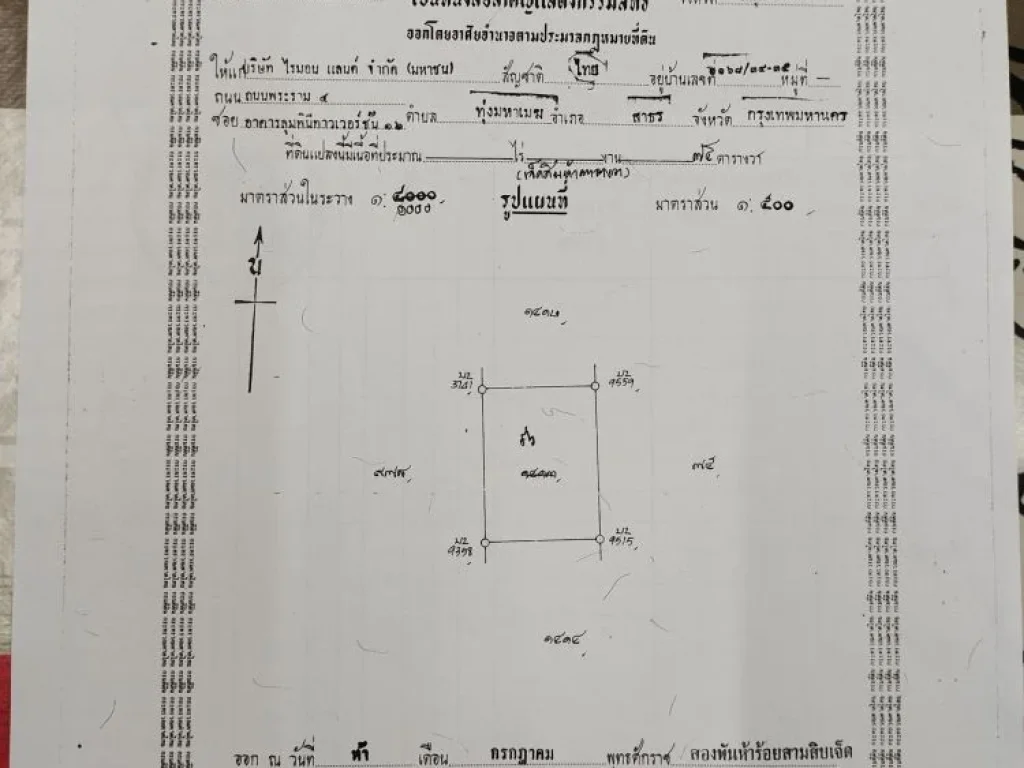 เป็นหนังสือสำคัญแสดงกรรมสิทธิ์
ออกโดยอาศัยอำนาจตามประมวลกฎหมายที่ดิน
ให้แก่ บริษัท ไรมอน แลนด์ จำกัด (มหาชน) สัญชาติ ไทย อยู่บ้านเลขที่ ๑๑๖๘/๓๔-๓๕ หมู่ที่ —
ถนน ถนนพระราม ๔
ซอย อาคารลุมพินีทาวเวอร์ชั้น ๑๖ ตำบล ทุ่งมหาเมฆ อำเภอ สาธร จังหวัด กรุงเทพมหานคร
ที่ดินแปลงนี้มีเนื้อที่ประมาณ ไร่ งาน ๗๕ ตารางวา
(เจ็ดสิบห้าตารางวา)
มาตราส่วนในระวาง ๑: ๔๐๐๐ รูปแผนที่ มาตราส่วน ๑: ๕๐๐
๑๐๐๐
น
๑๔๑๒
บ2 บ2
3741 9559
๑๔๑๓
๙๗๗ ๗๕
บ2 บ2
9398 9515
๑๔๑๔
ออก ณ วันที่ ห้า เดือน กรกฎาคม พุทธศักราช สองพันห้าร้อยสามสิบเจ็ด